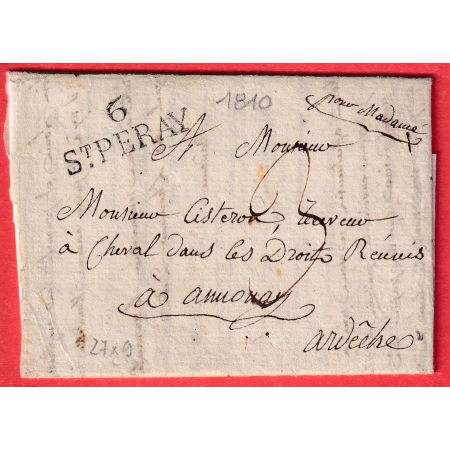 1810
6
ST PERAY
pour Madame
A Monsieur
Monsieur Cisteron, Receveur
à Cheval dans les Droits Réunis
à annonay
ardêche
3
27x9